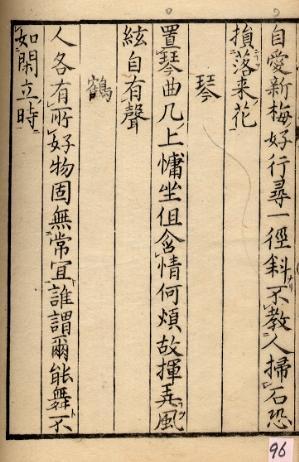 自愛新梅好行尋一徑斜不教人掃石恐
損落来花
琴
置琴曲几上慵坐但含情何煩故揮弄風
絃自有聲
鶴
人各有所好物固無常宜誰謂爾能舞不
如閑立時
96